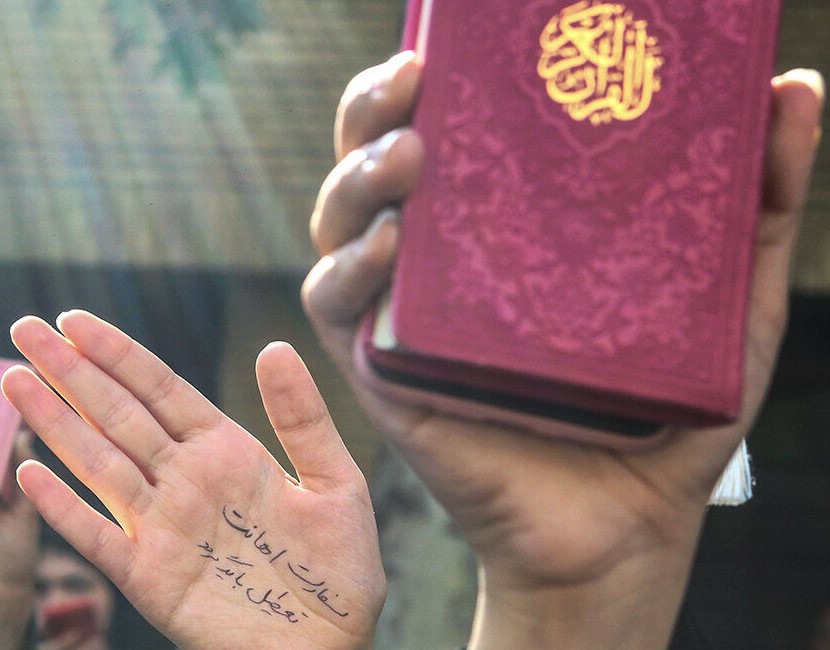 القرآن الكريم
سفارت اهانت
تعطیل باید گردد